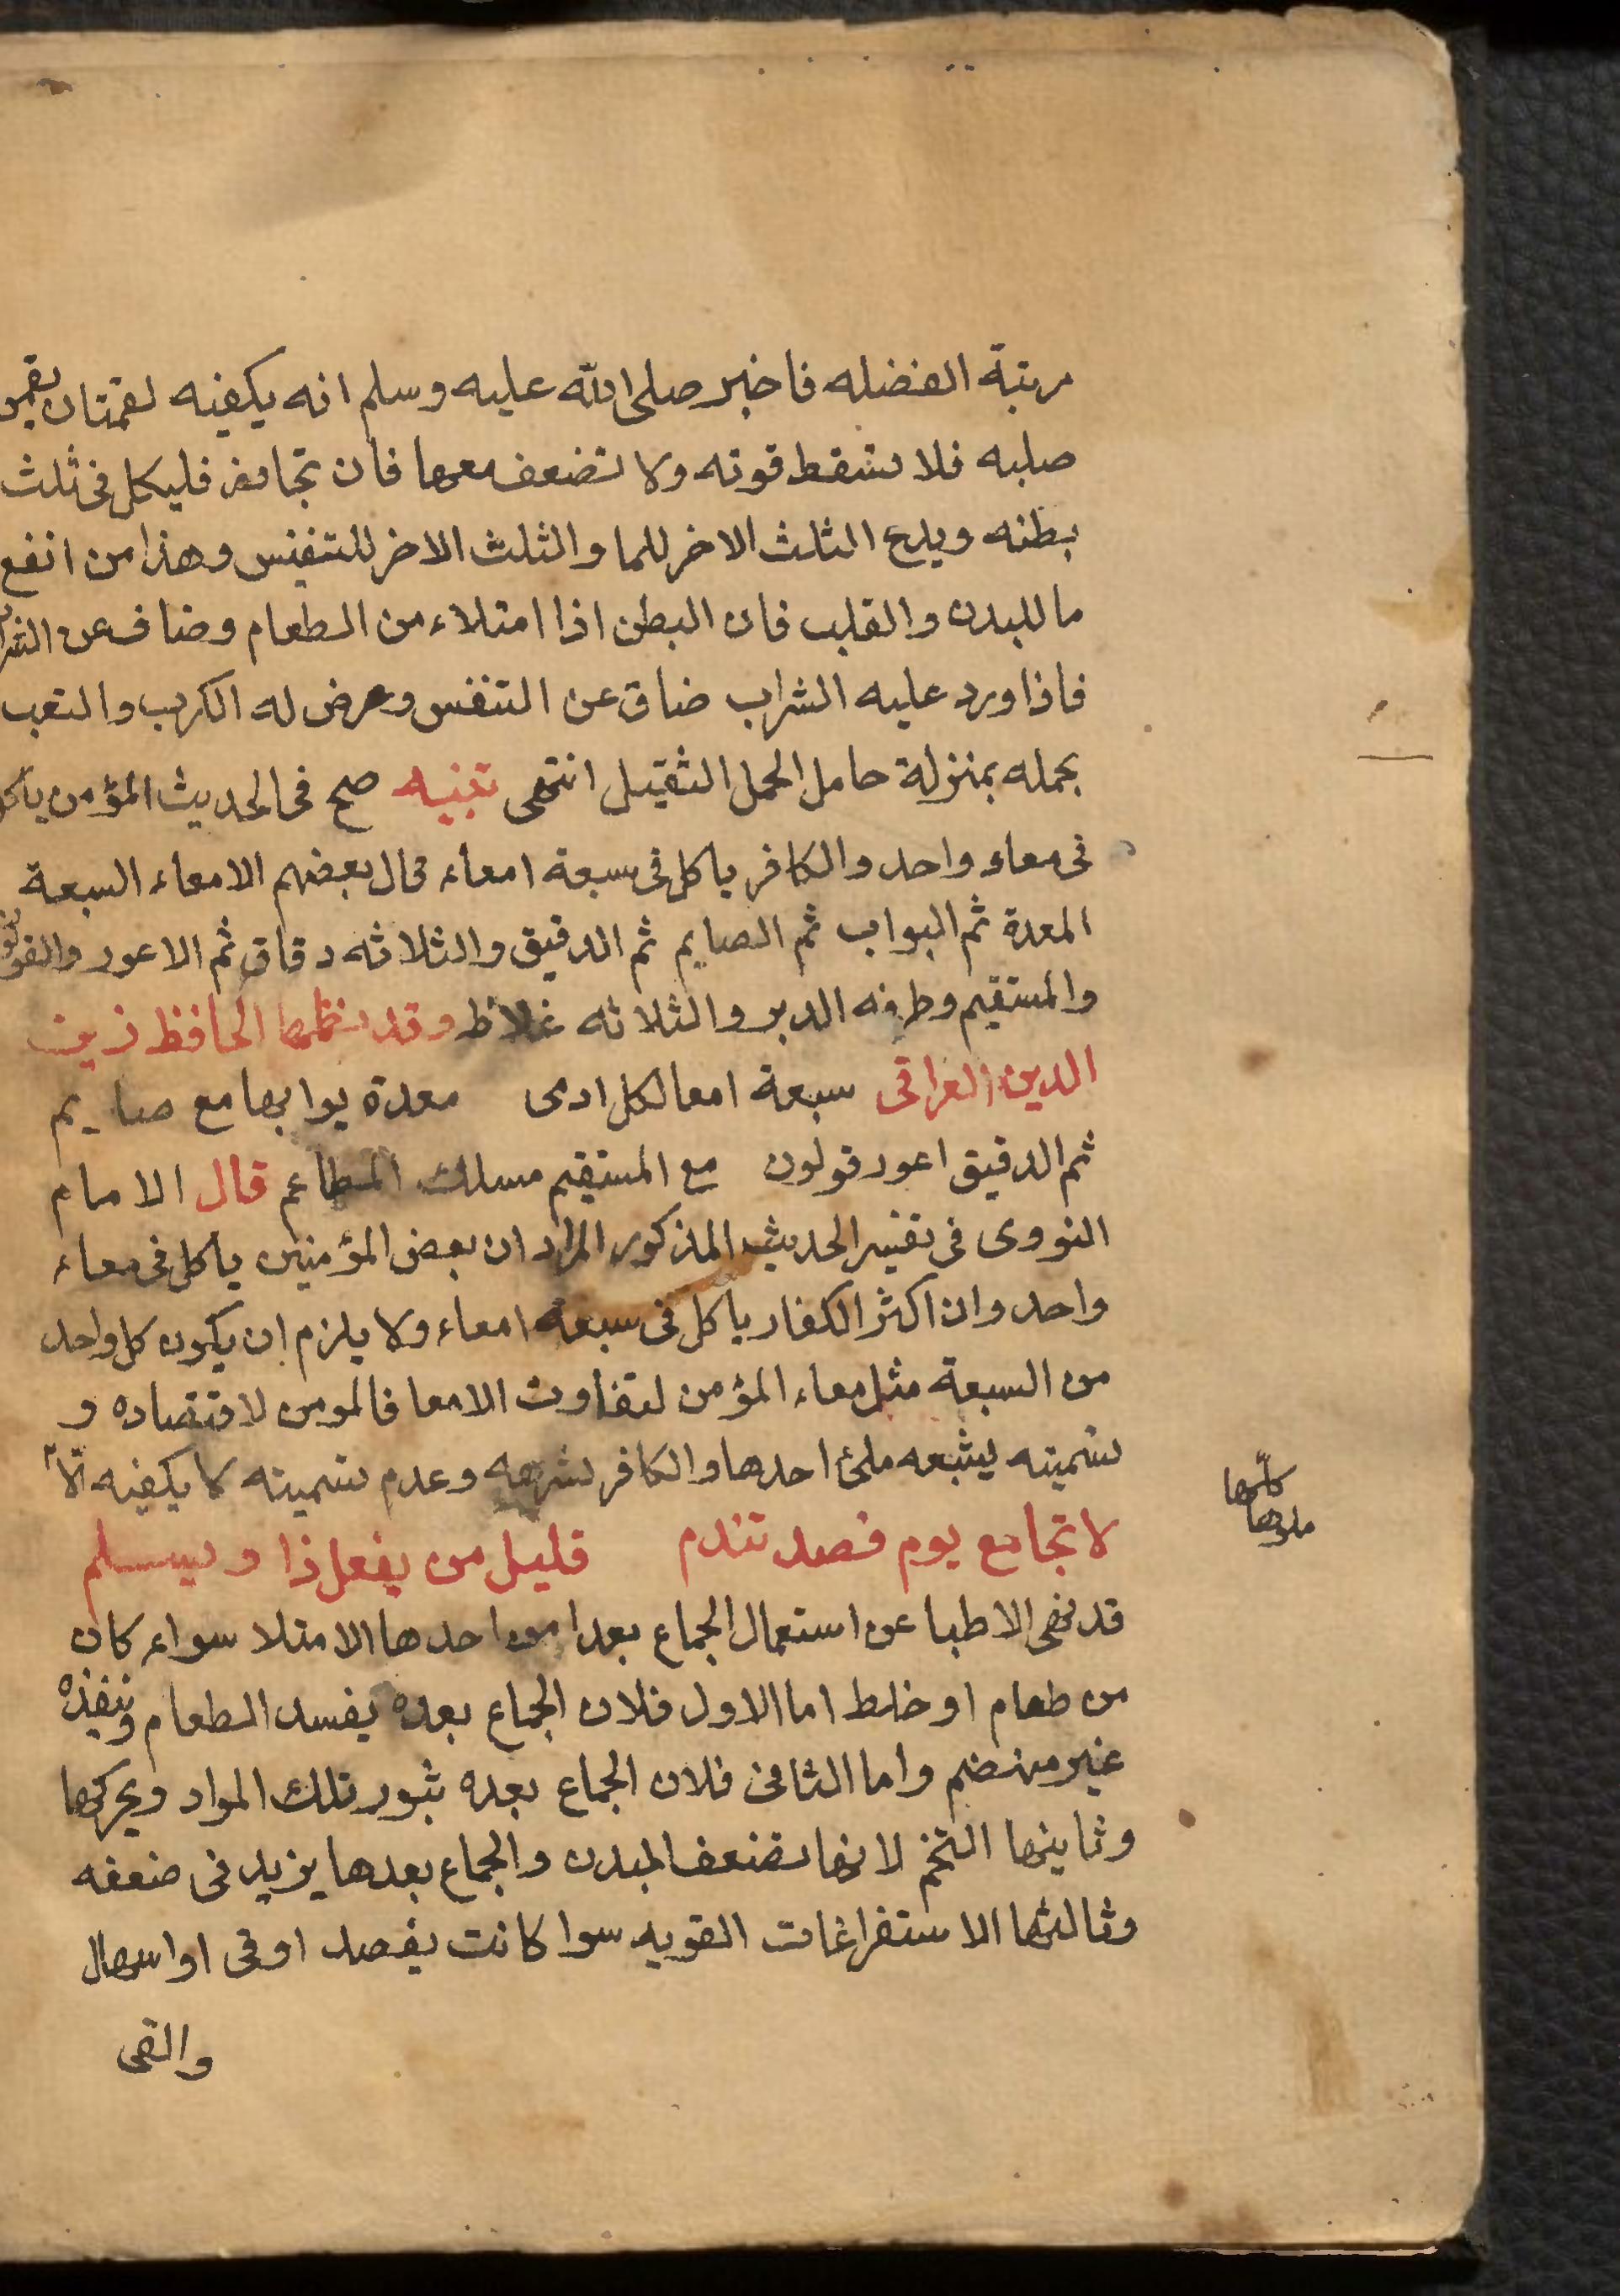 مرتبة الفضله فاخبر صلى الله عليه وسلم انه يكفيه لقمتان يقمن
صلبه فلا تسقط قوته ولا تضعف معها فان تجاوز فلياكل فى ثلث
بطنه ويدع الثلث الاخر للما والثلث الاخر للتنفس وهذا من انفع
ما للبدن والقلب فان البطن اذا امتلاء من الطعام وضاف عن الشراب
فاذا ورد عليه الشراب ضاق عن التنفس وعرض له الكرب والتعب
بحمله بمنزلة حامل الحمل الثقيل انتهى تنبيه صح فى الحديث المؤمن ياكل
فى معاء واحد والكافر ياكل فى سبعة امعاء قال بعضهم الامعاء السبعة
المعدة ثم البواب ثم الصايم ثم الدقيق والثلاثه دقاق ثم الاعور والقولون
والمستقيم وطرفه الدبر والثلاثه غلاظ وقد نظمها الحافظ زين
الدين العراقى سبعة امعا لكل ادمى معدة بوابها مع صايم
ثم الدقيق اعور قولون مع المستقيم مسلك المطاعم قال الامام
النووى فى تفسير الحديث المذكور المراد ان بعض المؤمنين ياكل فى معاء
واحد وان اكثر الكفار ياكل فى سبعة امعاء ولا يلزم ان يكون كل واحد
من السبعة مثل معاء المؤمن لتفاوت الامعا فالمومن لاقتصاده و
تسميته يشبعه ملئ احدها والكافر لشرهه وعدم تسميته لا يكفيه الا
كلها
ملوها
لا تجامع يوم فصد تندم قليل من يفعل ذا ويسلم
قد نهى الاطبا عن استعمال الجماع بعد امور احدها الامتلا سواء كان
من طعام او خلط اما الاول فلان الجماع بعده يفسد الطعام وينفذه
غير منهضم واما الثانى فلان الجماع بعده يثور تلك المواد ويحركها
وثانيها التخم لانها تضعف البدن والجماع بعدها يزيد فى ضعفه
وثالثها الاستفراغات القويه سوا كانت بفصد او قى او اسهال
والقى